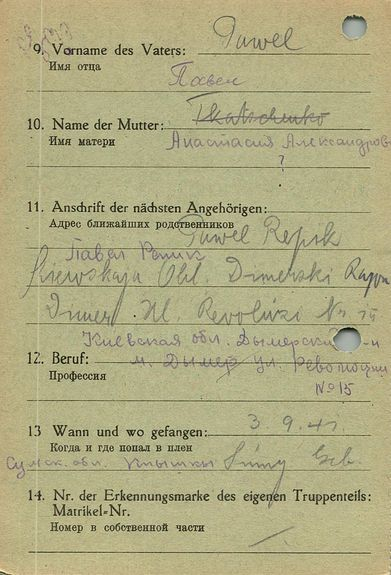 9. Vorname des Vaters: Pawel
Имя отца
Павел
10. Name der Mutter: Tkatschenko
Имя матери Анастасия Александров
?
11. Anschrift der nächsten Angehörigen:
Адрес ближайших родственников
Pawel Repik
Павел Репик
Obl. Dimerski Rayon
Dimer Ul. Revoluzi Nr. 15
Киевская обл. Дымерский р-н
12. Beruf: м. Дымер ул. Революции
Профессия
№ 15
13 Wann und wo gefangen: 3. 9. 41.
Когда и где попал в плен
Сумск. обл. Sumy Geb.
14. Nr. der Erkennungsmarke des eigenen Truppenteils:
Matrikel-Nr.
Номер в собственной части